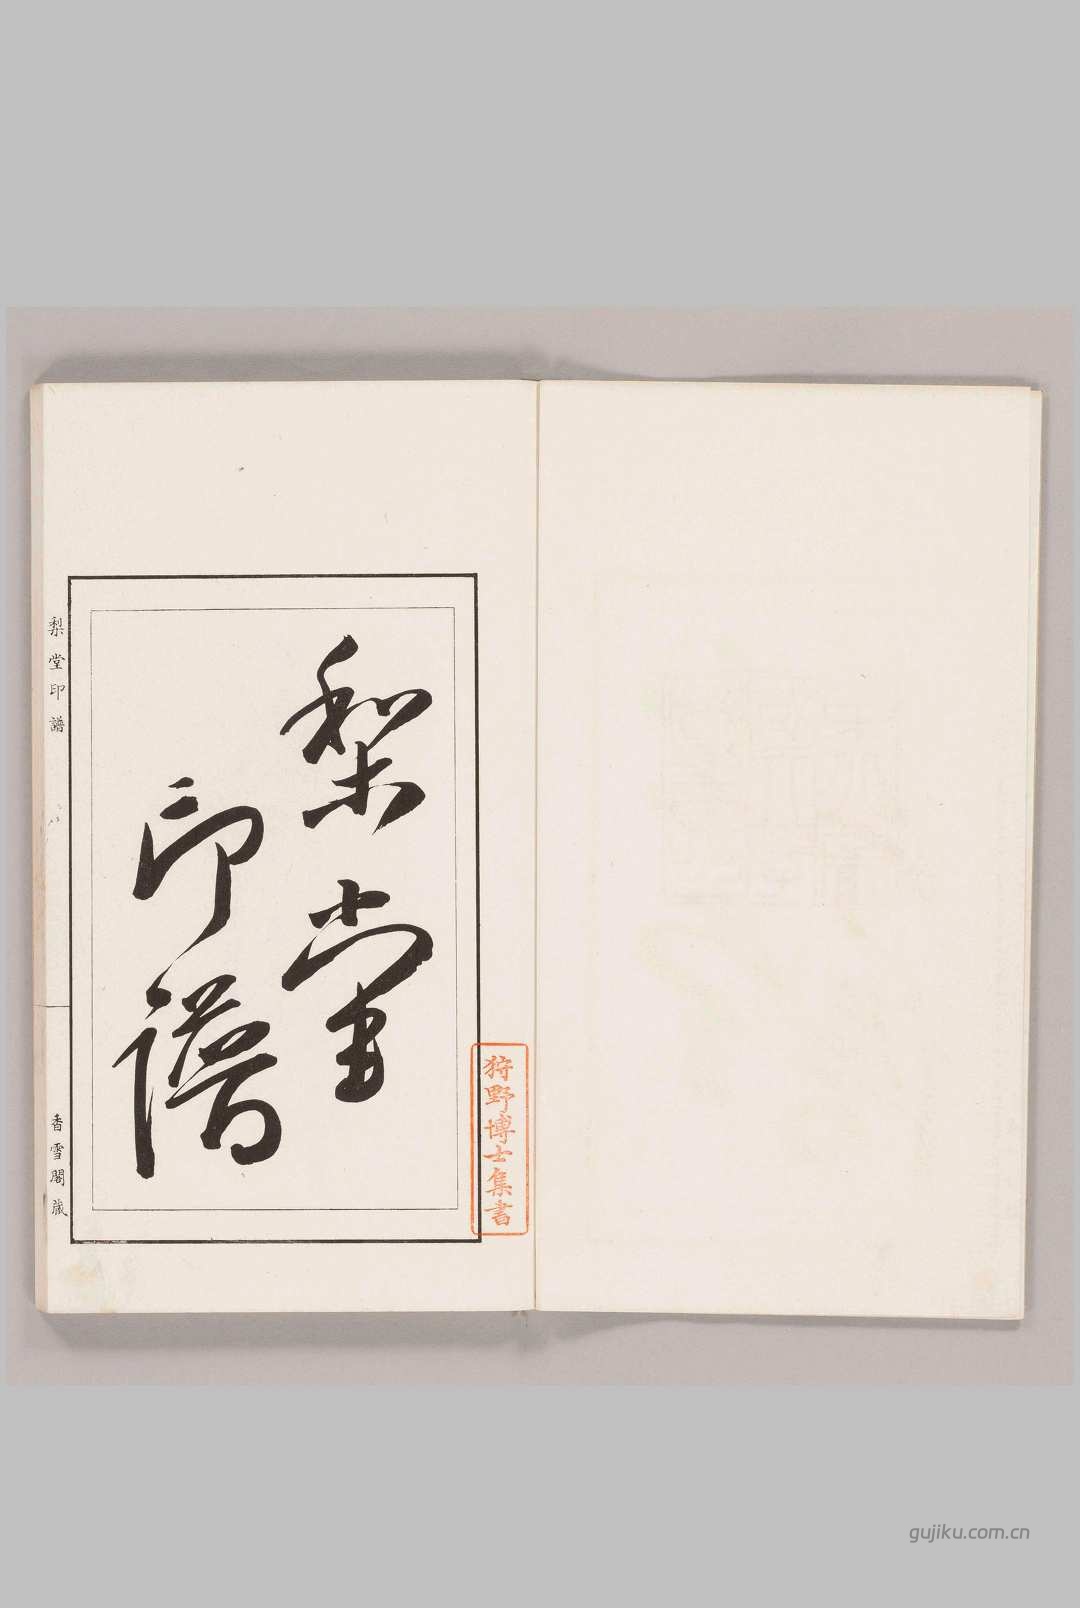 梨堂
印譜
狩野博士集書
梨堂印譜
香雪閣蔵
gujiku.com.cn